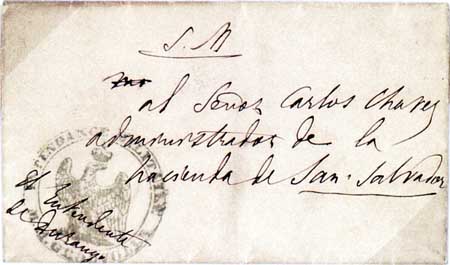 S. M
al Señor Carlos Chavez
administrador de la
hacienda de San. Salvador
El Intendente
de Durango